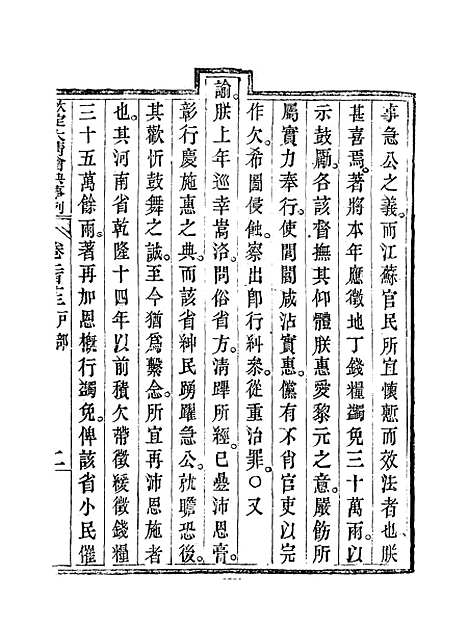 奉急公之義。而江蘇官民所宜懷慙而效法者也。朕
甚喜焉。著將本年應徵地丁錢糧。蠲免三十萬兩。以
示鼓勵。各該督撫其仰體朕惠愛黎元之意。嚴飭所
屬實力奉行。使閭閻咸沾實惠。儻有不肖官吏以完
作欠。希圖侵蝕。察出卽行糾參。從重治罪。○又
諭。朕上年巡幸嵩洛。問俗省方。清蹕所經。已疊沛恩膏。
彰行慶施惠之典。而該省紳民踴躍急公。就瞻恐後。
其歡忻鼓舞之誠。至今猶爲繫念。所宜再沛恩施者
也。其河南省乾隆十四年以前積欠帶徵緩徵錢糧
三十五萬餘兩。著再加恩槪行蠲免。俾該省小民催
欽定大清會典事例 卷二百六十三 戶部 二